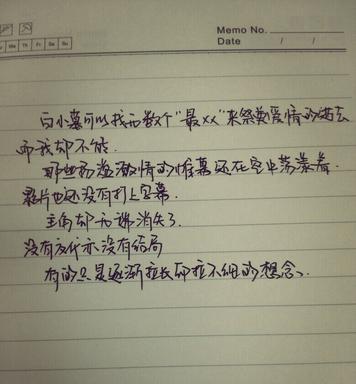 Memo No.
Mo Tu We Th Fr Sa Su
Date / /
白小墓可以找无数个“最xx”来祭奠爱情的逝去
而我却不能.
那些扬溢激情的帷幕还在空中荡漾着.
影片也还没有打上字幕.
主角却无端消失了.
没有交代亦没有结局
有的只是逐渐拉长却拉不细的想念、